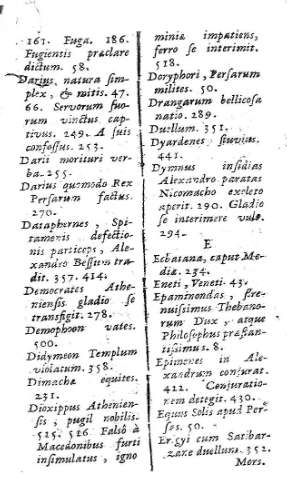 161. Fuga. 186.
Fugiensis præclare
dictum. 58.
Darius, natura sim-
plex, & mitis. 47.
66. Servorum suo-
rum vinctus cap-
tivus. 249. A suis
confossus. 253.
Darii morituri ver-
ba. 255.
Darius quomodo Rex
Persarum factus.
270.
Dataphernes, Spi-
tamenis defectio-
nis particeps, Ale-
xandro Bessum tra-
dit. 357. 414.
Democrates Athe-
niensis gladio se
transfigit. 278.
Demophoon vates.
500.
Didymeon Templum
violatum. 358.
Dimachæ equites.
231.
Dioxippus Athenien-
sis, pugil nobilis.
525. 526. Falsò à
Macedonibus furti
insimulatus, igno
miniæ impatiens,
ferro se interimit.
518.
Doryphori, Persarum
milites. 50.
Drangarum bellicosa
natio. 289.
Duellum. 351.
Dyardenes fluvius.
441.
Dymnus insidias
Alexandro paratas
Nicomacho exoleto
aperit. 290. Gladio
se interimere vult.
294.
E
Ecbatana, caput Me-
diæ. 234.
Eneti, Veneti. 43.
Epaminondas, stre-
nuissimus Thebano-
rum Dux, atque
Philosophus præstan-
tissimus. 8.
Epimenes in Ale-
xandrum conjurat.
422. Conjuratio-
nem detegit. 430.
Equus Solis apud Per-
sas. 50.
Erigyi cum Satibar-
zane duellum. 352
Mors.